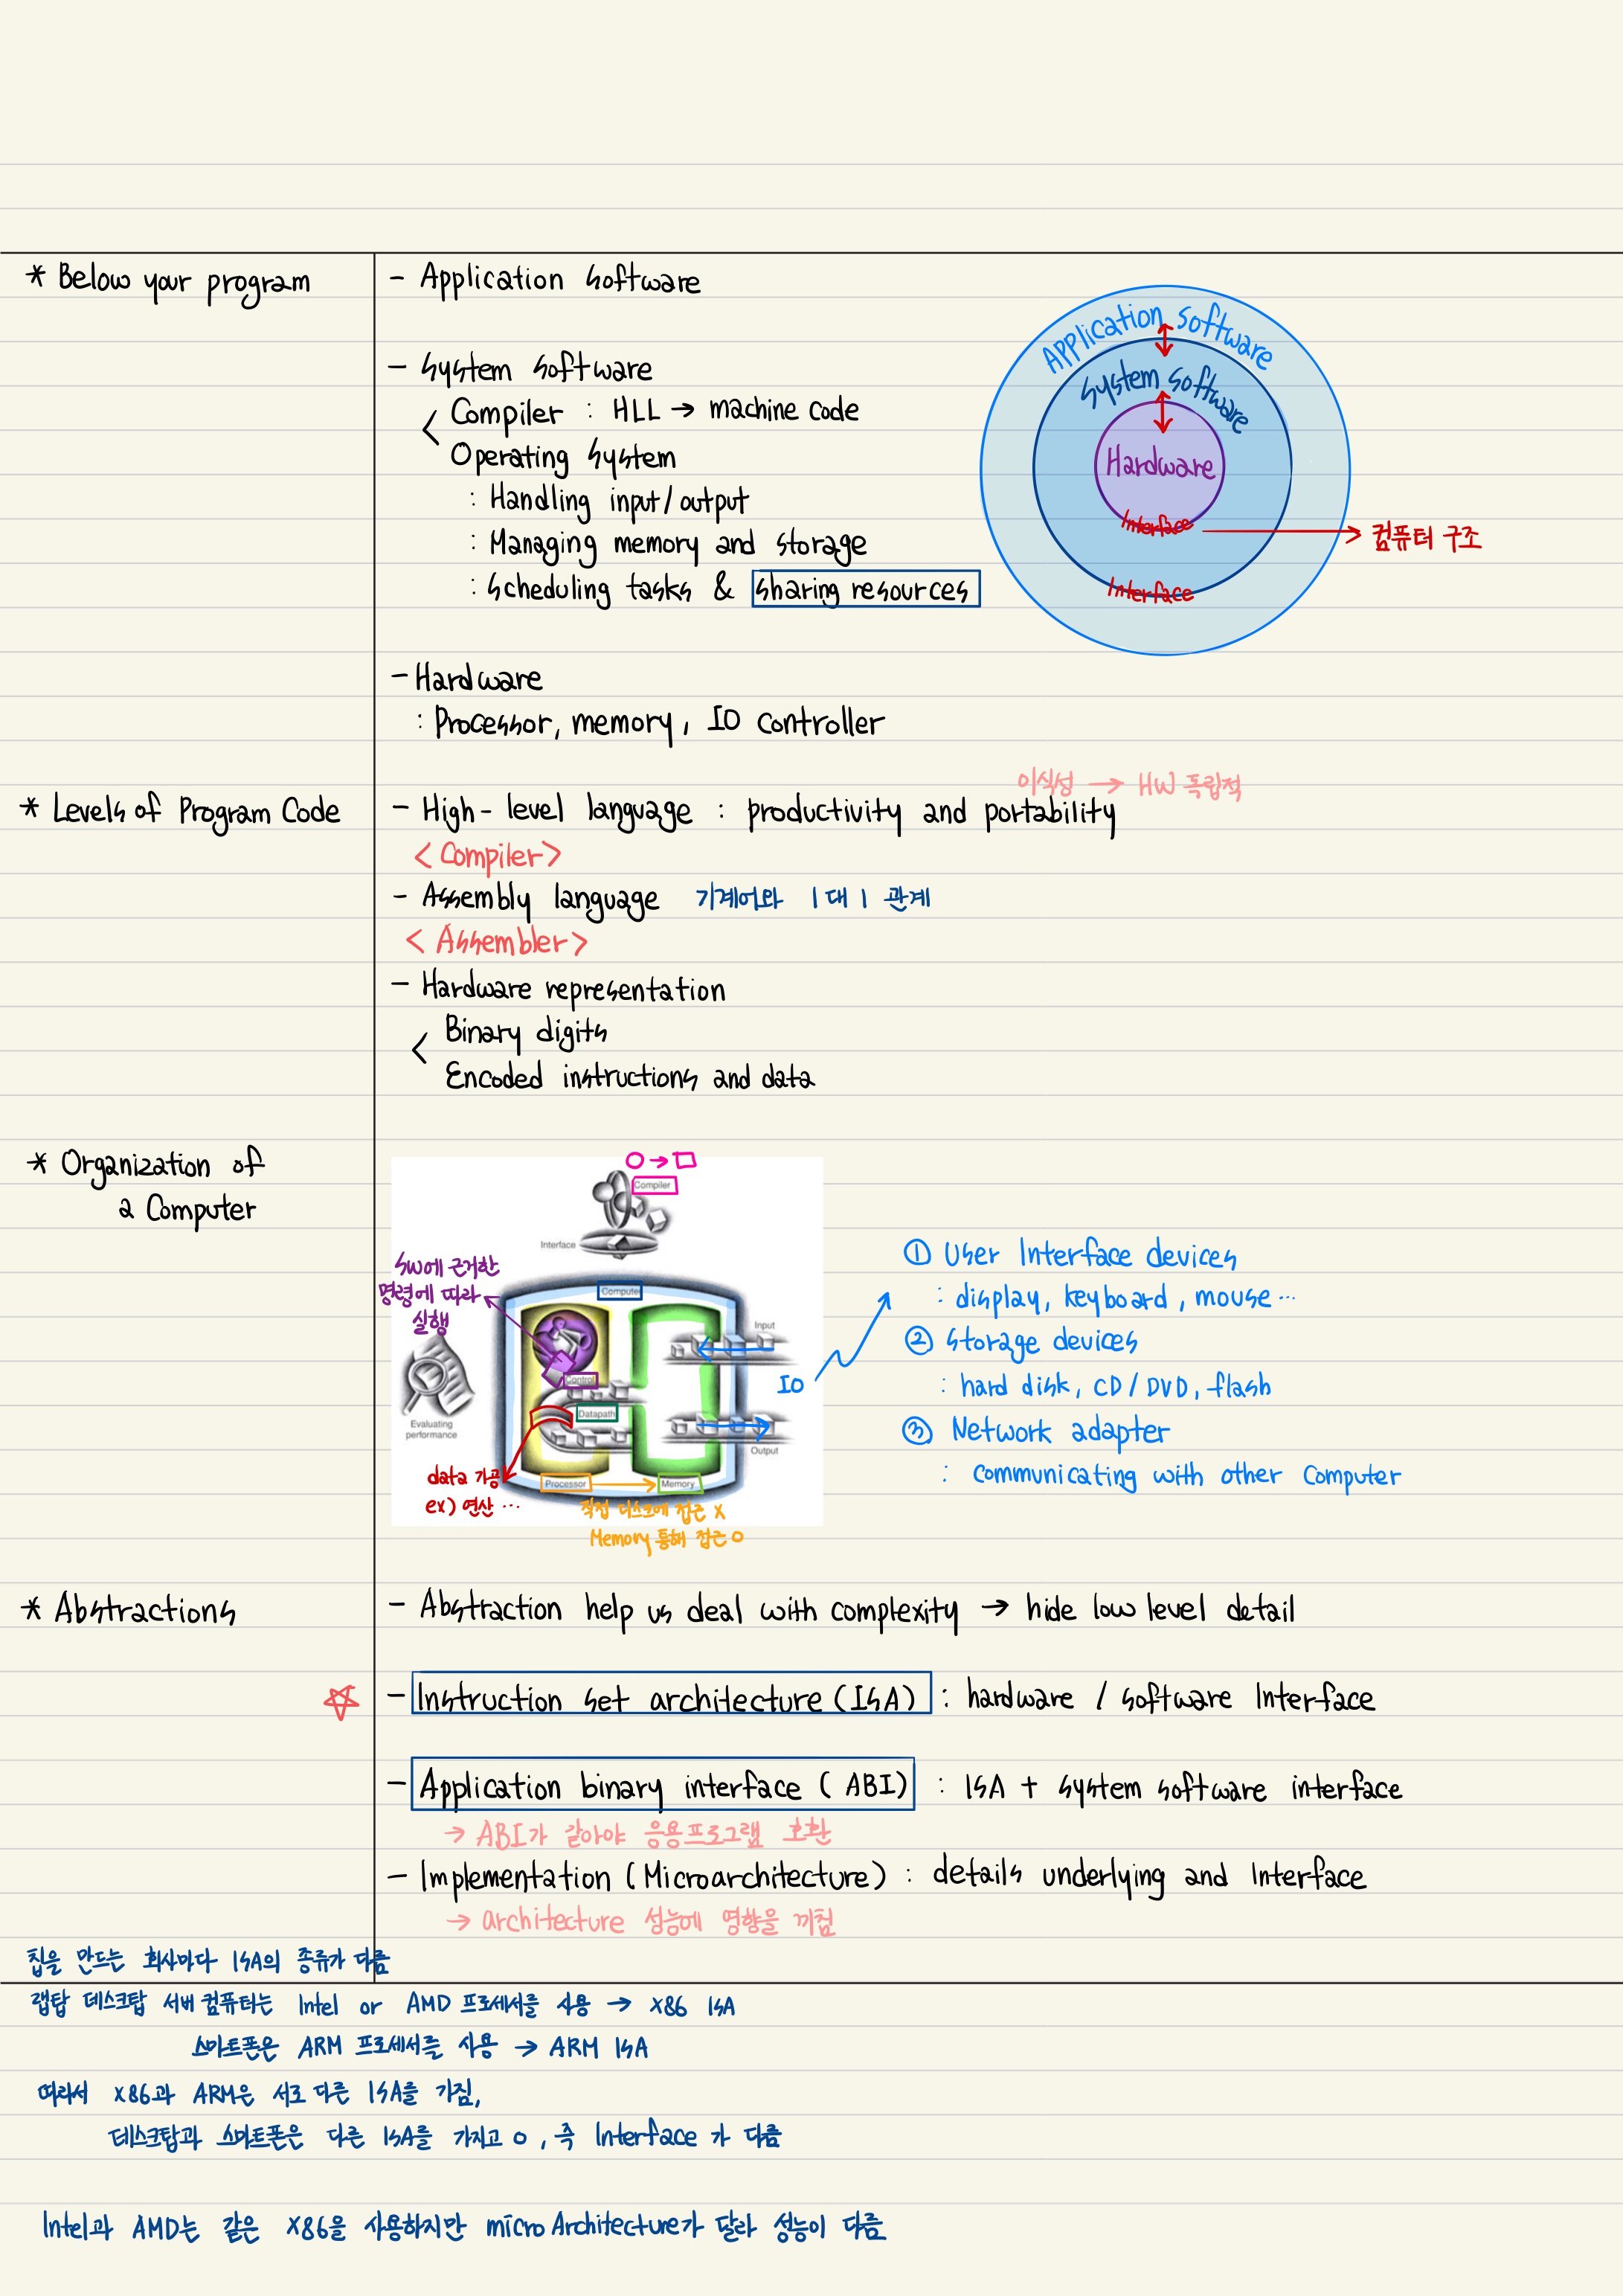 * Below your program
- Application Software
- System Software
Compiler : HLL → machine code
Operating System
: Handling input/output
: Managing memory and storage
: Scheduling tasks & sharing resources
- Hardware
: Processor, memory, IO controller
Application Software
System Software
Hardware
Interface → 컴퓨터 구조
Interface
이식성 → HW 독립적
* Levels of Program Code
- High-level language : productivity and portability
< Compiler >
- Assembly language 기계어와 1대1 관계
< Assembler >
- Hardware representation
Binary digits
Encoded instructions and data
* Organization of
a Computer
O → □
Compiler
Interface
SW에 근거한
명령에 따라
실행
Computer
Input
Control
IO
Datapath
Evaluating
performance
Output
data 가공
ex) 연산 ...
Processor → Memory
직접 디스크에 접근 X
Memory 통해 접근 O
① User Interface devices
: display, keyboard, mouse ...
② Storage devices
: hard disk, CD/DVD, flash
③ Network adapter
: communicating with other Computer
* Abstractions
- Abstraction help us deal with complexity → hide low level detail
- Instruction set architecture (ISA) : hardware / software Interface
- Application binary interface (ABI) : ISA + system software interface
→ ABI가 같아야 응용프로그램 호환
- Implementation (Microarchitecture) : details underlying and Interface
→ architecture 성능에 영향을 끼침
칩을 만드는 회사마다 ISA의 종류가 다름
랩탑 데스크탑 서버 컴퓨터는 Intel or AMD 프로세서를 사용 → X86 ISA
스마트폰은 ARM 프로세서를 사용 → ARM ISA
따라서 X86과 ARM은 서로 다른 ISA를 가짐,
데스크탑과 스마트폰은 다른 ISA를 가지고 O, 즉 Interface 가 다름
Intel과 AMD는 같은 X86을 사용하지만 micro Architecture가 달라 성능이 다름